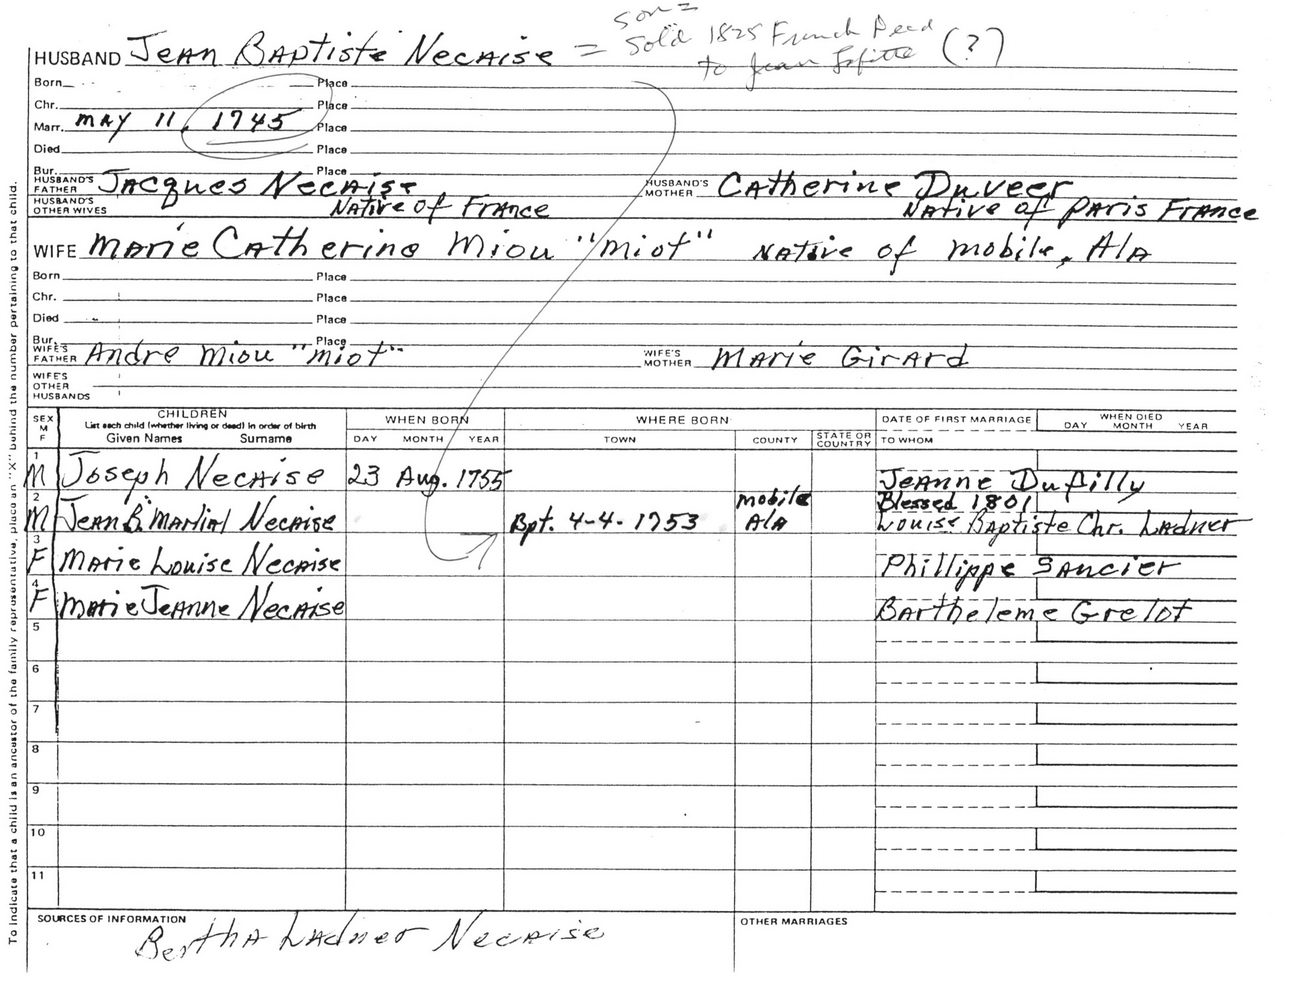 son =
HUSBAND Jean Baptiste Necaise = Sold 1825 French Deed (?)
to Jean Lafitte
Born Place
Chr. Place
Marr. May 11, 1745 Place
Died Place
Bur. Place
HUSBAND'S FATHER Jacques Necaise HUSBAND'S MOTHER Catherine Duveer
HUSBAND'S OTHER WIVES Native of France Native of Paris France
WIFE Marie Catherine Miou "Miot" Native of Mobile, Ala
Born Place
Chr. Place
Died Place
Bur. Place
WIFE'S FATHER Andre Miou "Miot" WIFE'S MOTHER Marie Girard
WIFE'S OTHER HUSBANDS
SEX M F CHILDREN WHEN BORN WHERE BORN DATE OF FIRST MARRIAGE WHEN DIED
List each child (whether living or dead) in order of birth
Given Names Surname DAY MONTH YEAR TOWN COUNTY STATE OR COUNTRY TO WHOM DAY MONTH YEAR
1 M Joseph Necaise 23 Aug. 1755 Jeanne Dupilly
2 M Jean B. "Martial Necaise Bpt. 4-4-1753 Mobile Ala Blessed 1801 Louise Baptiste Chr. Ladner
3 F Marie Louise Necaise Phillippe Saucier
4 F Marie Jeanne Necaise Bartheleme Grelot
5
6
7
8
9
10
11
SOURCES OF INFORMATION OTHER MARRIAGES
Bertha Ladner Necaise
To indicate that a child is an ancestor of the family representative, place an "X" behind the number pertaining to that child.